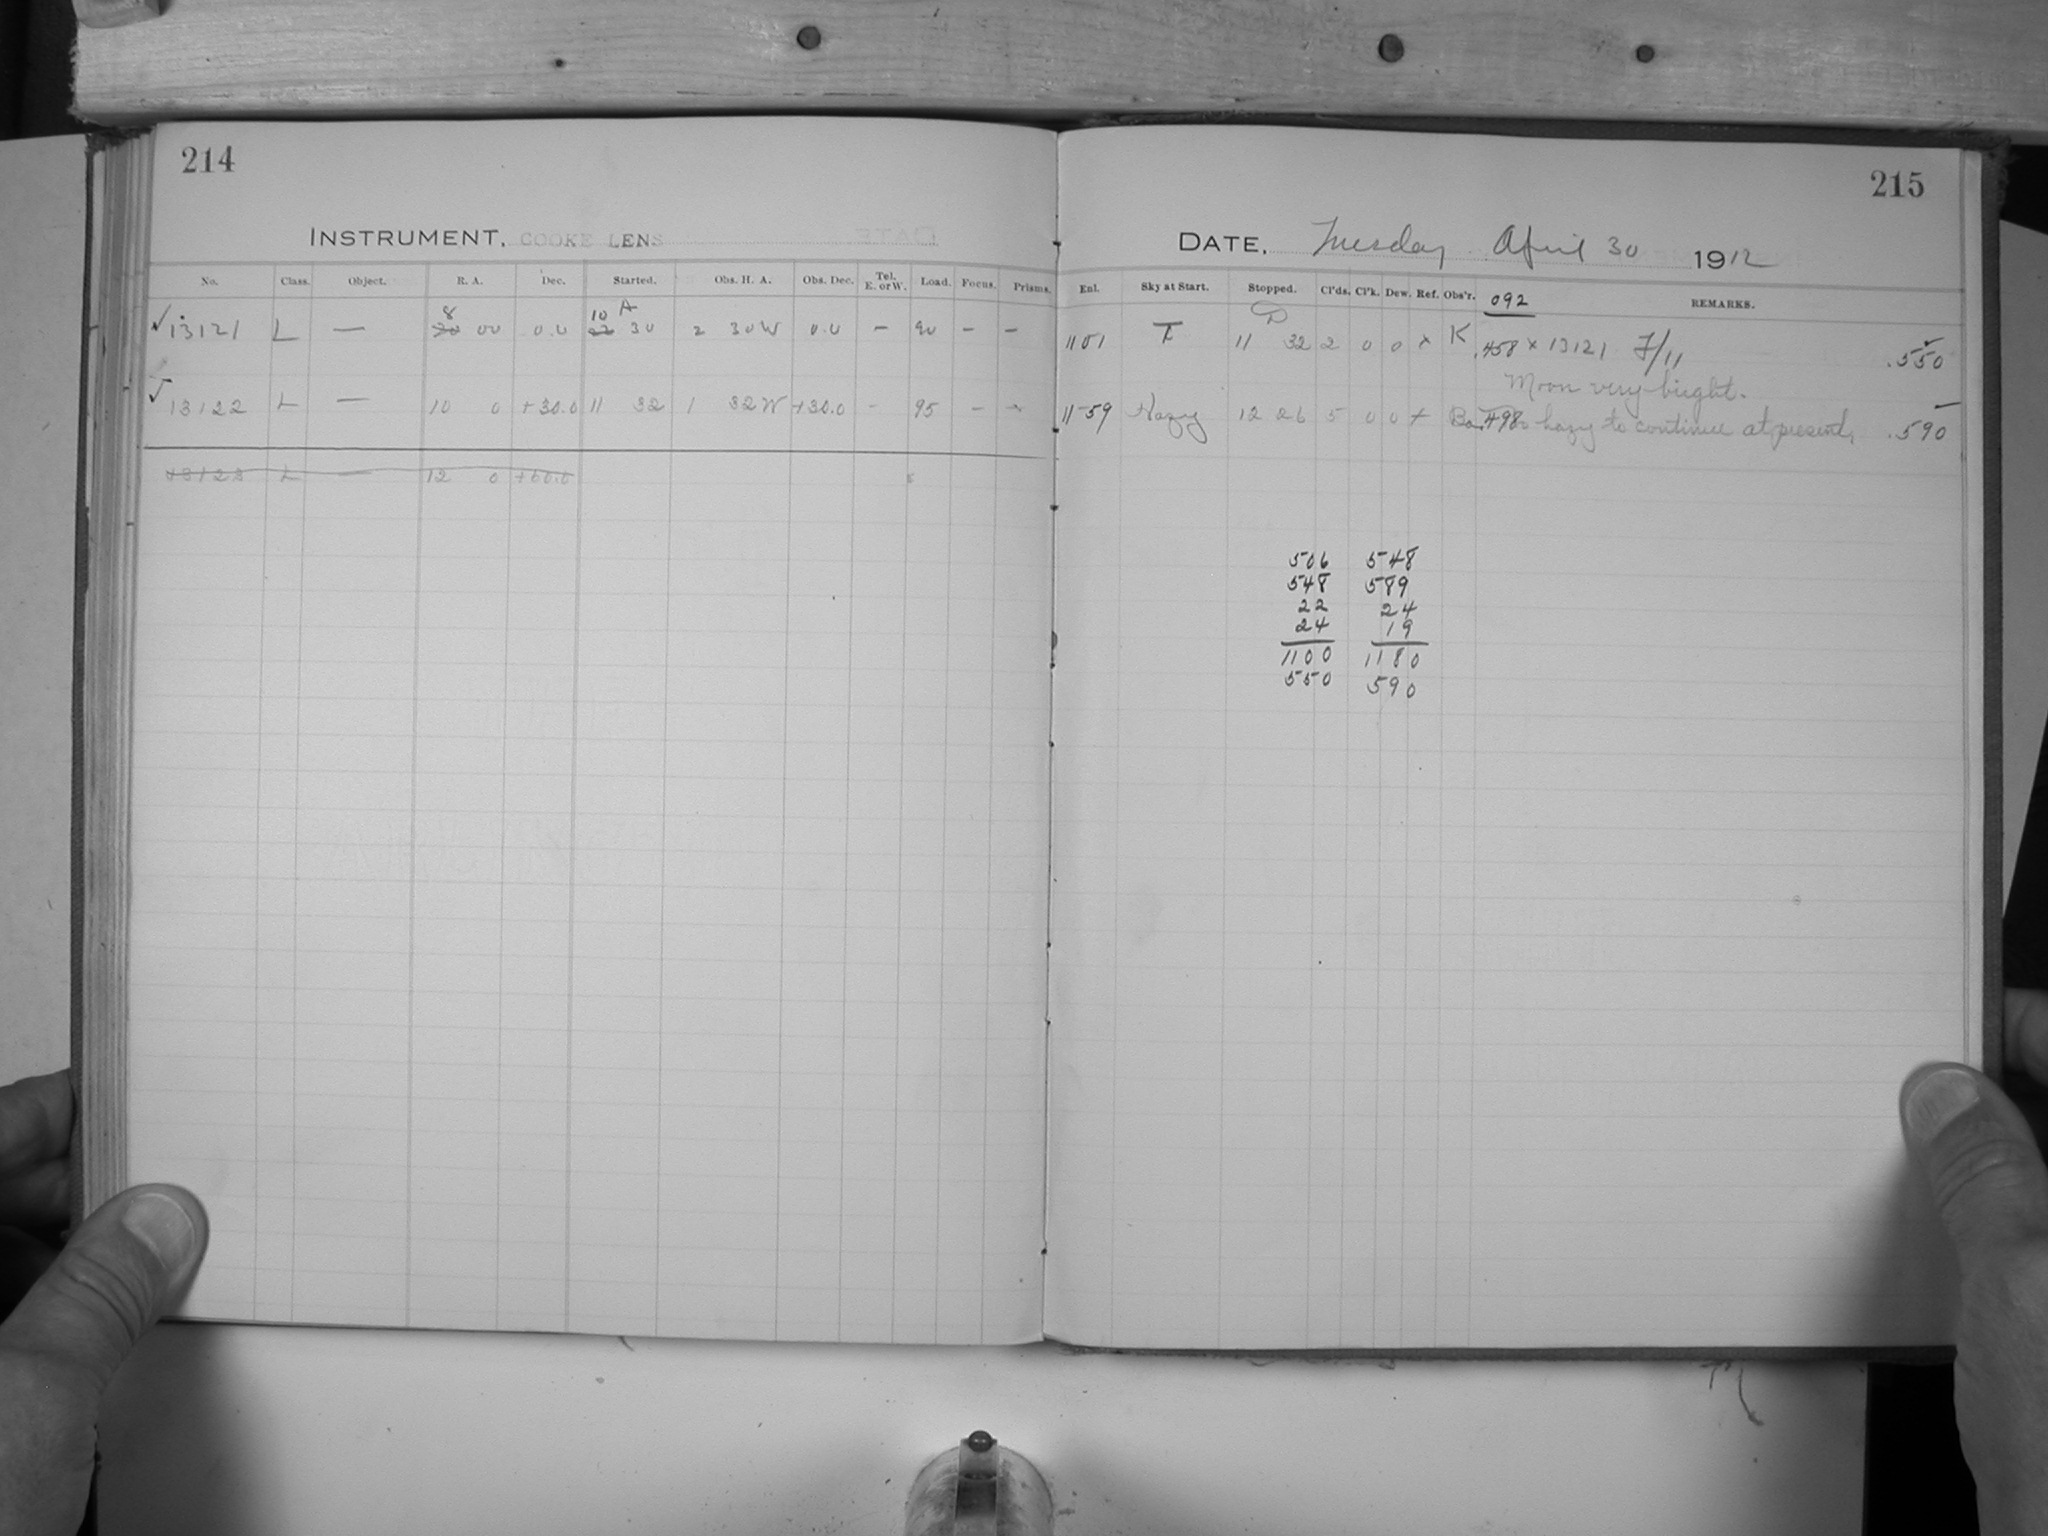 214
INSTRUMENT. COOKE LENS
No. Class. Object. R. A. Dec. Started. Obs. H. A. Obs. Dec. Tel. E. or W. Load. Focus. Prisms.
8 10 A
13121 L — 20 00 0.0 22 30 2 30W 0.0 — 90 — —
13122 L — 10 0 +30.0 11 32 1 32W +30.0 - 95 - -
13123 L — 12 0 +60.0
215
DATE. Tuesday April 30 1912
Enl. Sky at Start. Stopped. Cl'ds. Cl'k. Dew. Ref. Obs'r. 092 REMARKS.
1101 11 32 2 0 0 x K .458 x 13121 F/11 .550
Moon very bright.
1159 Hazy 12 26 5 0 0 + 498 hazy to continue at present. .590
506 548
548 589
22 24
24 19
1100 1180
550 590